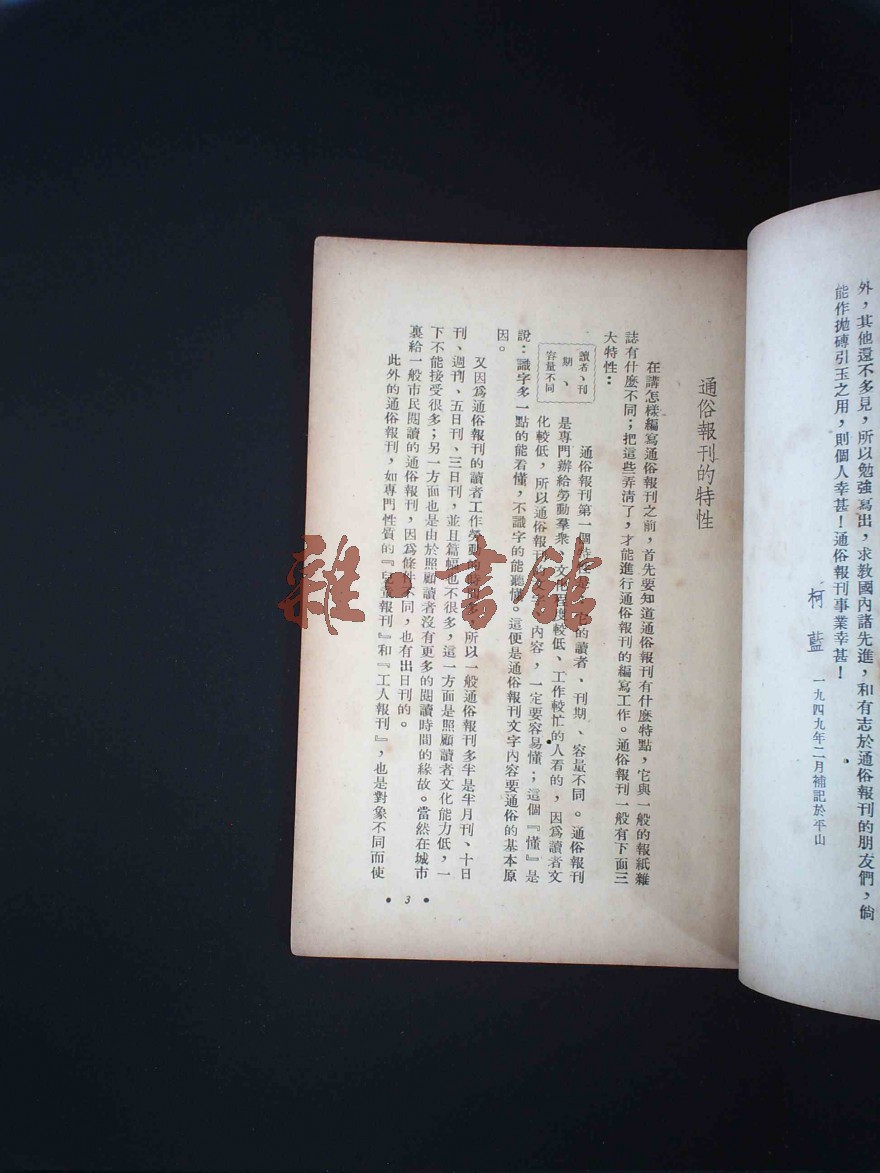 外，其他還不多見，所以勉強寫出，求教國內諸先進，和有志於通俗報刊的朋友們，倘
能作拋磚引玉之用，則個人幸甚！通俗報刊事業幸甚！
柯藍
一九四九年二月補記於平山
通俗報刊的特性
在講怎樣編寫通俗報刊之前，首先要知道通俗報刊有什麼特點，它與一般的報紙雜
誌有什麼不同；把這些弄清了，才能進行通俗報刊的編寫工作。通俗報刊一般有下面三
大特性：
讀者、刊
期、
容量不同
通俗報刊第一個特性 它的讀者、刊期、容量不同。通俗報刊
是專門辦給勞動羣衆、文化程度較低、工作較忙的人看的，因爲讀者文
化較低，所以通俗報刊 內容，一定要容易懂；這個『懂』是
說：識字多一點的能看懂，不識字的能聽懂。這便是通俗報刊文字內容要通俗的基本原
因。
又因爲通俗報刊的讀者工作勞動的時間多，所以一般通俗報刊多半是半月刊、十日
刊、週刊、五日刊、三日刊，並且篇幅也不很多，這一方面是照顧讀者文化能力低，一
下不能接受很多；另一方面也是由於照顧讀者沒有更多的閱讀時間的緣故。當然在城市
裏給一般市民閱讀的通俗報刊，因爲條件不同，也有出日刊的。
此外的通俗報刊，如專門性質的『兒童報刊』和『工人報刊』，也是對象不同而使
• 3 •
雜·書館